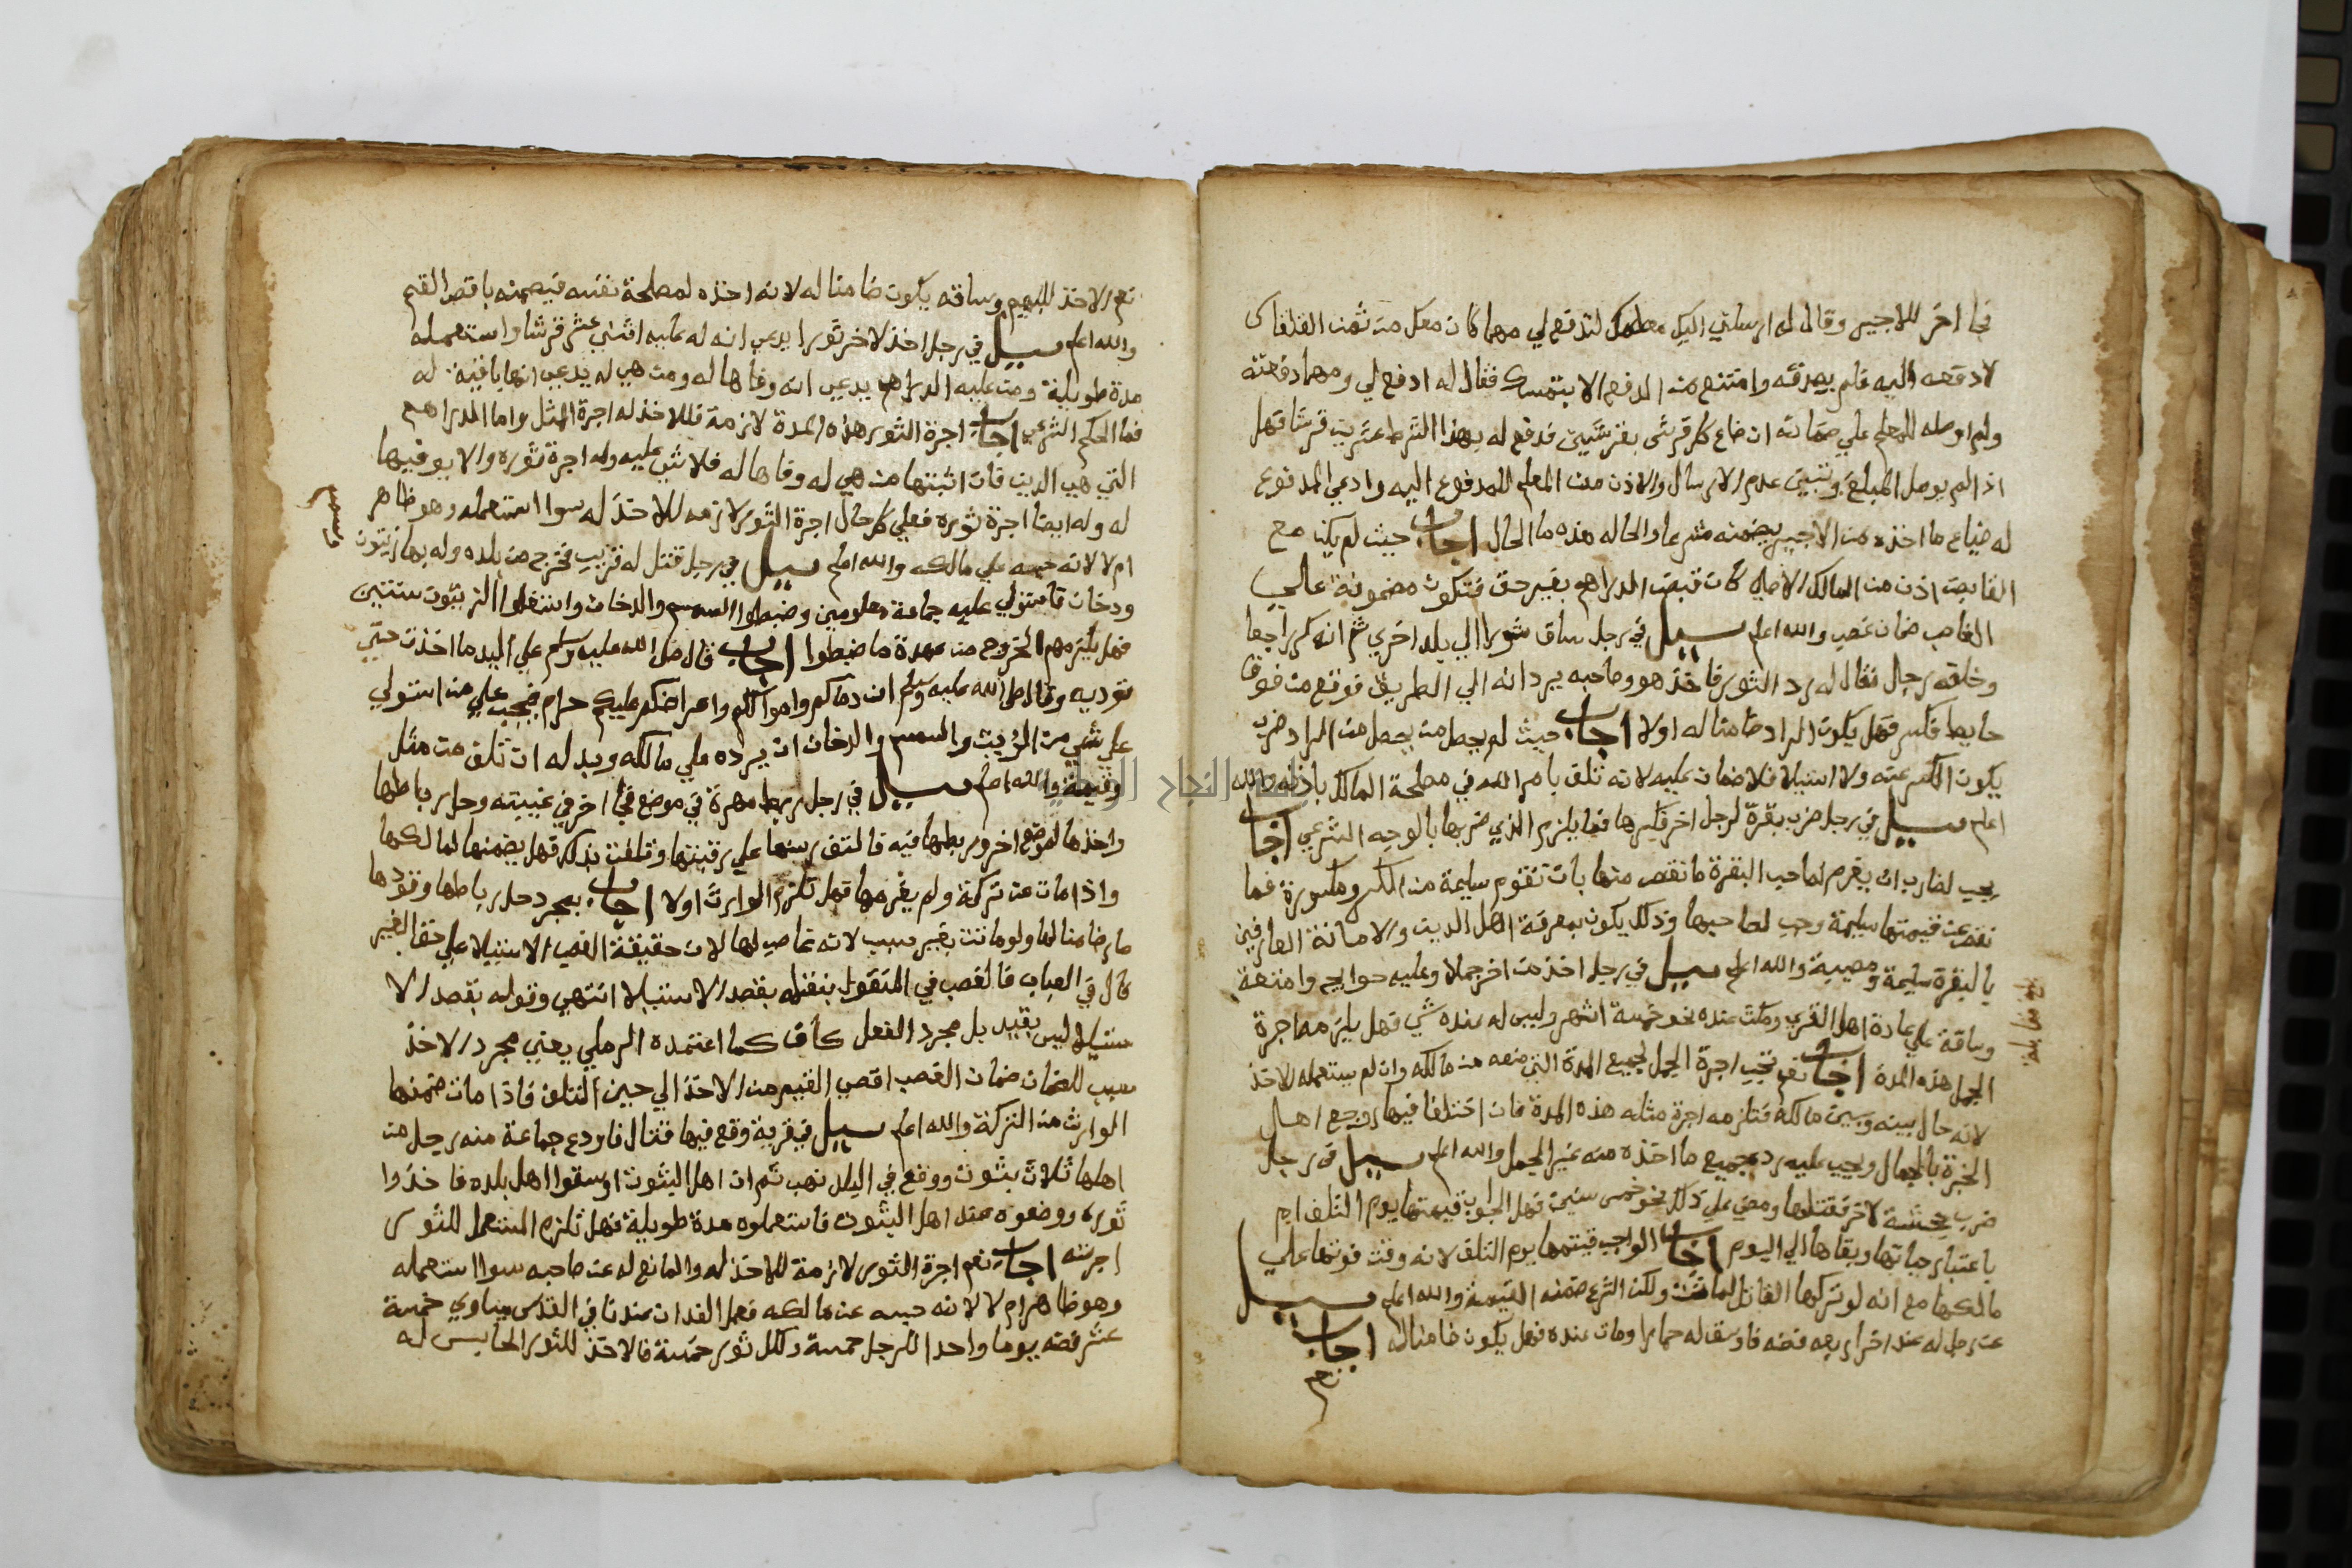 فجا اخر للاجير وقال له ارسلني اليك معلمك لتدفع لي مهما كان معك من ثمن القلقاس
لادفعه اليه فلم يصدقه وامتنع من الدفع الا بتمسك فقال له ادفع لي ومهما دفعته
ولم اوصله للمعلم علي ضمانه ان ضاع كل قرش بقرشين فدفع له بهذا الشرط عشرين قرشا فهل
اذا لم يوصل المبلغ وتبين عدم الارسال والاذن من المعلم للمدفوع اليه وادعي المدفوع
له ضياع ما اخذه من الاجير يضمنه شرعا والحاله هذه ما الحال اجاب حيث لم يكن مع
القابض اذن من المالك الاصلي كان قبض الدراهم بغير حق فتكون مضمونة علي
الغاصب ضمان غصب والله اعلم سيل في رجل ساق ثورا الي بلد اخري ثم انه كر راجعا
وخلفه رجال فقال له رد الثور فاخذ هو وصاحبه يردانه الي الطريق فوقع من فوق
حايط فكسر فهل يكون الراد ضامنا له اولا اجاب حيث لم يحصل من يحصل من الراد ضرب
يكون الكسر عنه ولا استيلا فلا ضمان عليه لانه تلف بامر الله في مصلحة المالك باذنه والله
اعلم سيل في رجل ضرب بقرة لرجل اخر فكسرها فما يلزم الذي ضربها بالوجه الشرعي اجاب
يجب لضارب ان يغرم لصاحب البقرة ما نقص منها بان تقوم سليمة من الكسر ومكسورة فما
نقص عن قيمتها سليمة وجب لصاحبها وذلك يكون بمعرفة اهل الدين والامانة العارفين
بالبقرة سليمة ومعيبة والله اعلم سيل في رجل اخذ من اخر جملا وعليه حوايج وامتعة
وساقه علي عادة اهل القري ومكث عنده نحو خمسة اشهر وليس له عنده شي فهل يلزمه اجرة
الجمل هذه المدة اجاب نعم تجب اجرة الجمل لجميع المدة التي منعه من مالكه وان لم يستعمله الاخذ
لانه حال بينه وبين مالكه فتلزمه اجرة مثله هذه المدة فان اختلفا فيها روجع اهل
الخبرة بالجمال ويجب عليه رد جميع ما اخذه منه غير الجمل والله اعلم سيل في رجل
ضرب جحشة لاخر فقتلها ومضي علي ذلك نحو خمس سنين فهل الواجب قيمتها يوم التلف ام
باعتبار حياتها وبقاها الي اليوم اجاب الواجب قيمتها يوم التلف لانه وقت فوتها علي
مالكها مع انه لو تركها القاتل لماتت ولكن الشرع ضمنه القيمة والله اعلم سيل
عن رجل له عند اخر اربعه فضه فاوسق له حمارا ومات عنده فهل يكون ضامنا له اجاب
نعم
نعم الاخذ للبهيم وساقه يكون ضامنا له لانه اخذه لمصلحة نفسه فيضمنه باقصي القيم
والله اعلم سيل في رجل اخذ لاخر ثورا يدعي انه له عليه اثني عشر قرشا واستعمله
مدة طويلة ومن عليه الدراهم يدعي انه وفاها له ومن هي له يدعي انها باقية له
فما الحكم الشرعي اجاب اجرة الثور هذه المدة لازمة للاخذ له اجرة المثل واما الدراهم
التي هي الدين فان اثبتها من هي له وفاها له فلا شي عليه وله اجرة ثوره والا يوفيها
له وله ايضا اجرة ثوره فعلي كل حال اجرة الثور لازمه للاخذ له سوا استعمله وهو ظاهر
ام لا لانه حبسه علي مالكه والله اعلم سيل في رجل قتل له قريب فخرج من بلده وله بها زيتون
ودخان فاستولي عليه جماعة معلومين وضبطوا السمسم والدخان واستغلوا الزيتون سنتين
فهل يلزمهم الخروج من عهدة ما ضبطوا اجاب قال صلي الله عليه وسلم علي اليد ما اخذت حتي
توديه وقال صلي الله عليه وسلم ان دماكم واموالكم واعراضكم عليكم حرام فيجب علي من استولي
علي شي من الزيت والسمسم والدخان ان يرده علي مالكه وبدله ان تلف من مثل
وقيمة والله اعلم سيل في رجل ربط مهرة في موضع فجا اخر في غيبته وحل رباطها
واخذها لموضع اخر وربطها فيه فالتف رسنها علي رقبتها وتلفت بذلك فهل يضمنها لمالكها
واذا مات عن تركة ولم يغرمها فهل تلزم الوارث اولا اجاب بمجرد حل رباطها وقودها
صار ضامنا لها ولو ماتت بغير سبب لانه غاصب لها لان حقيقة الغصب الاستيلا علي حق الغير
قال في العباب فالغصب في المنقول بنقله بقصد الاستيلا انتهي وقوله بقصد الا
ستيلا ليس بقيد بل مجرد الفعل كاف كما اعتمده الرملي يعني مجرد الاخذ
سبب للضمان ضمان الغصب اقصي القيم من الاخذ الي حين التلف فاذا مات ضمنها
الوارث من التركة والله اعلم سيل في قرية وقع فيها قتال فاودع جماعة منه رجل من
اهلها ثلاث بثوت ووقع في البلد نهب ثم ان اهل البثوت اوسقوا اهل بلده فاخذوا
ثوره ووضعوه عند اهل البثوت فاستعملوه مدة طويلة فهل تلزم المستعمل للثور
اجرته اجاب نعم اجرة الثور لازمة للاخذ له والمانع له عن صاحبه سوا استعمله
وهو ظاهر ام لا لانه حبسه عن مالكه فعمل الفدان عندنا في القدس يساوي خمسة
عشر فضه يوما واحدا للرجل خمسة ولكل ثور خمسة فالاخذ للثور الحابس له